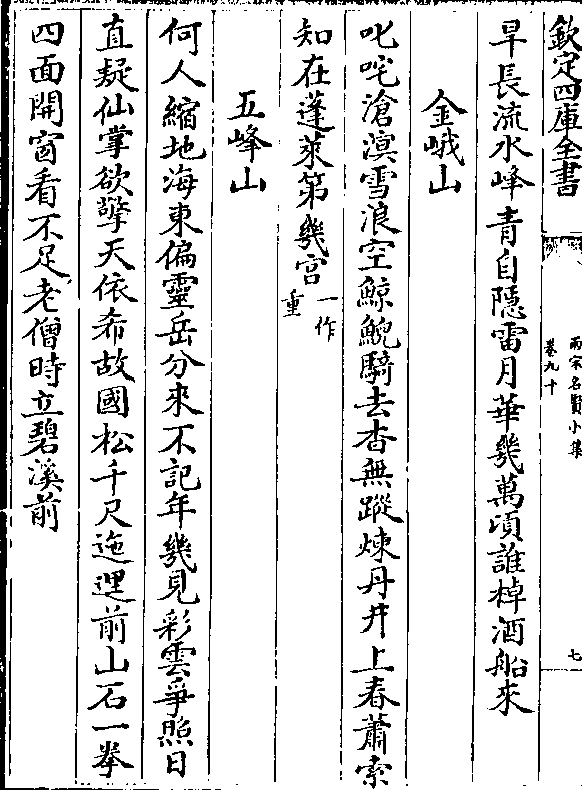 欽定四庫全書
兩宋名賢小集
卷九十
七
旱長流水峰青自隱雷月華幾萬頃誰棹酒船來
金峨山
叱咤滄溟雪浪空鯨鯢騎去杳無蹤煉丹井上春蕭索
知在蓬萊第幾宮一作
重
五峰山
何人縮地海東偏靈岳分來不記年幾見彩雲爭照日
直疑仙掌欲擎天依希故國松千尺迤𨓦前山石一拳
四面開窗看不足老僧時立碧溪前